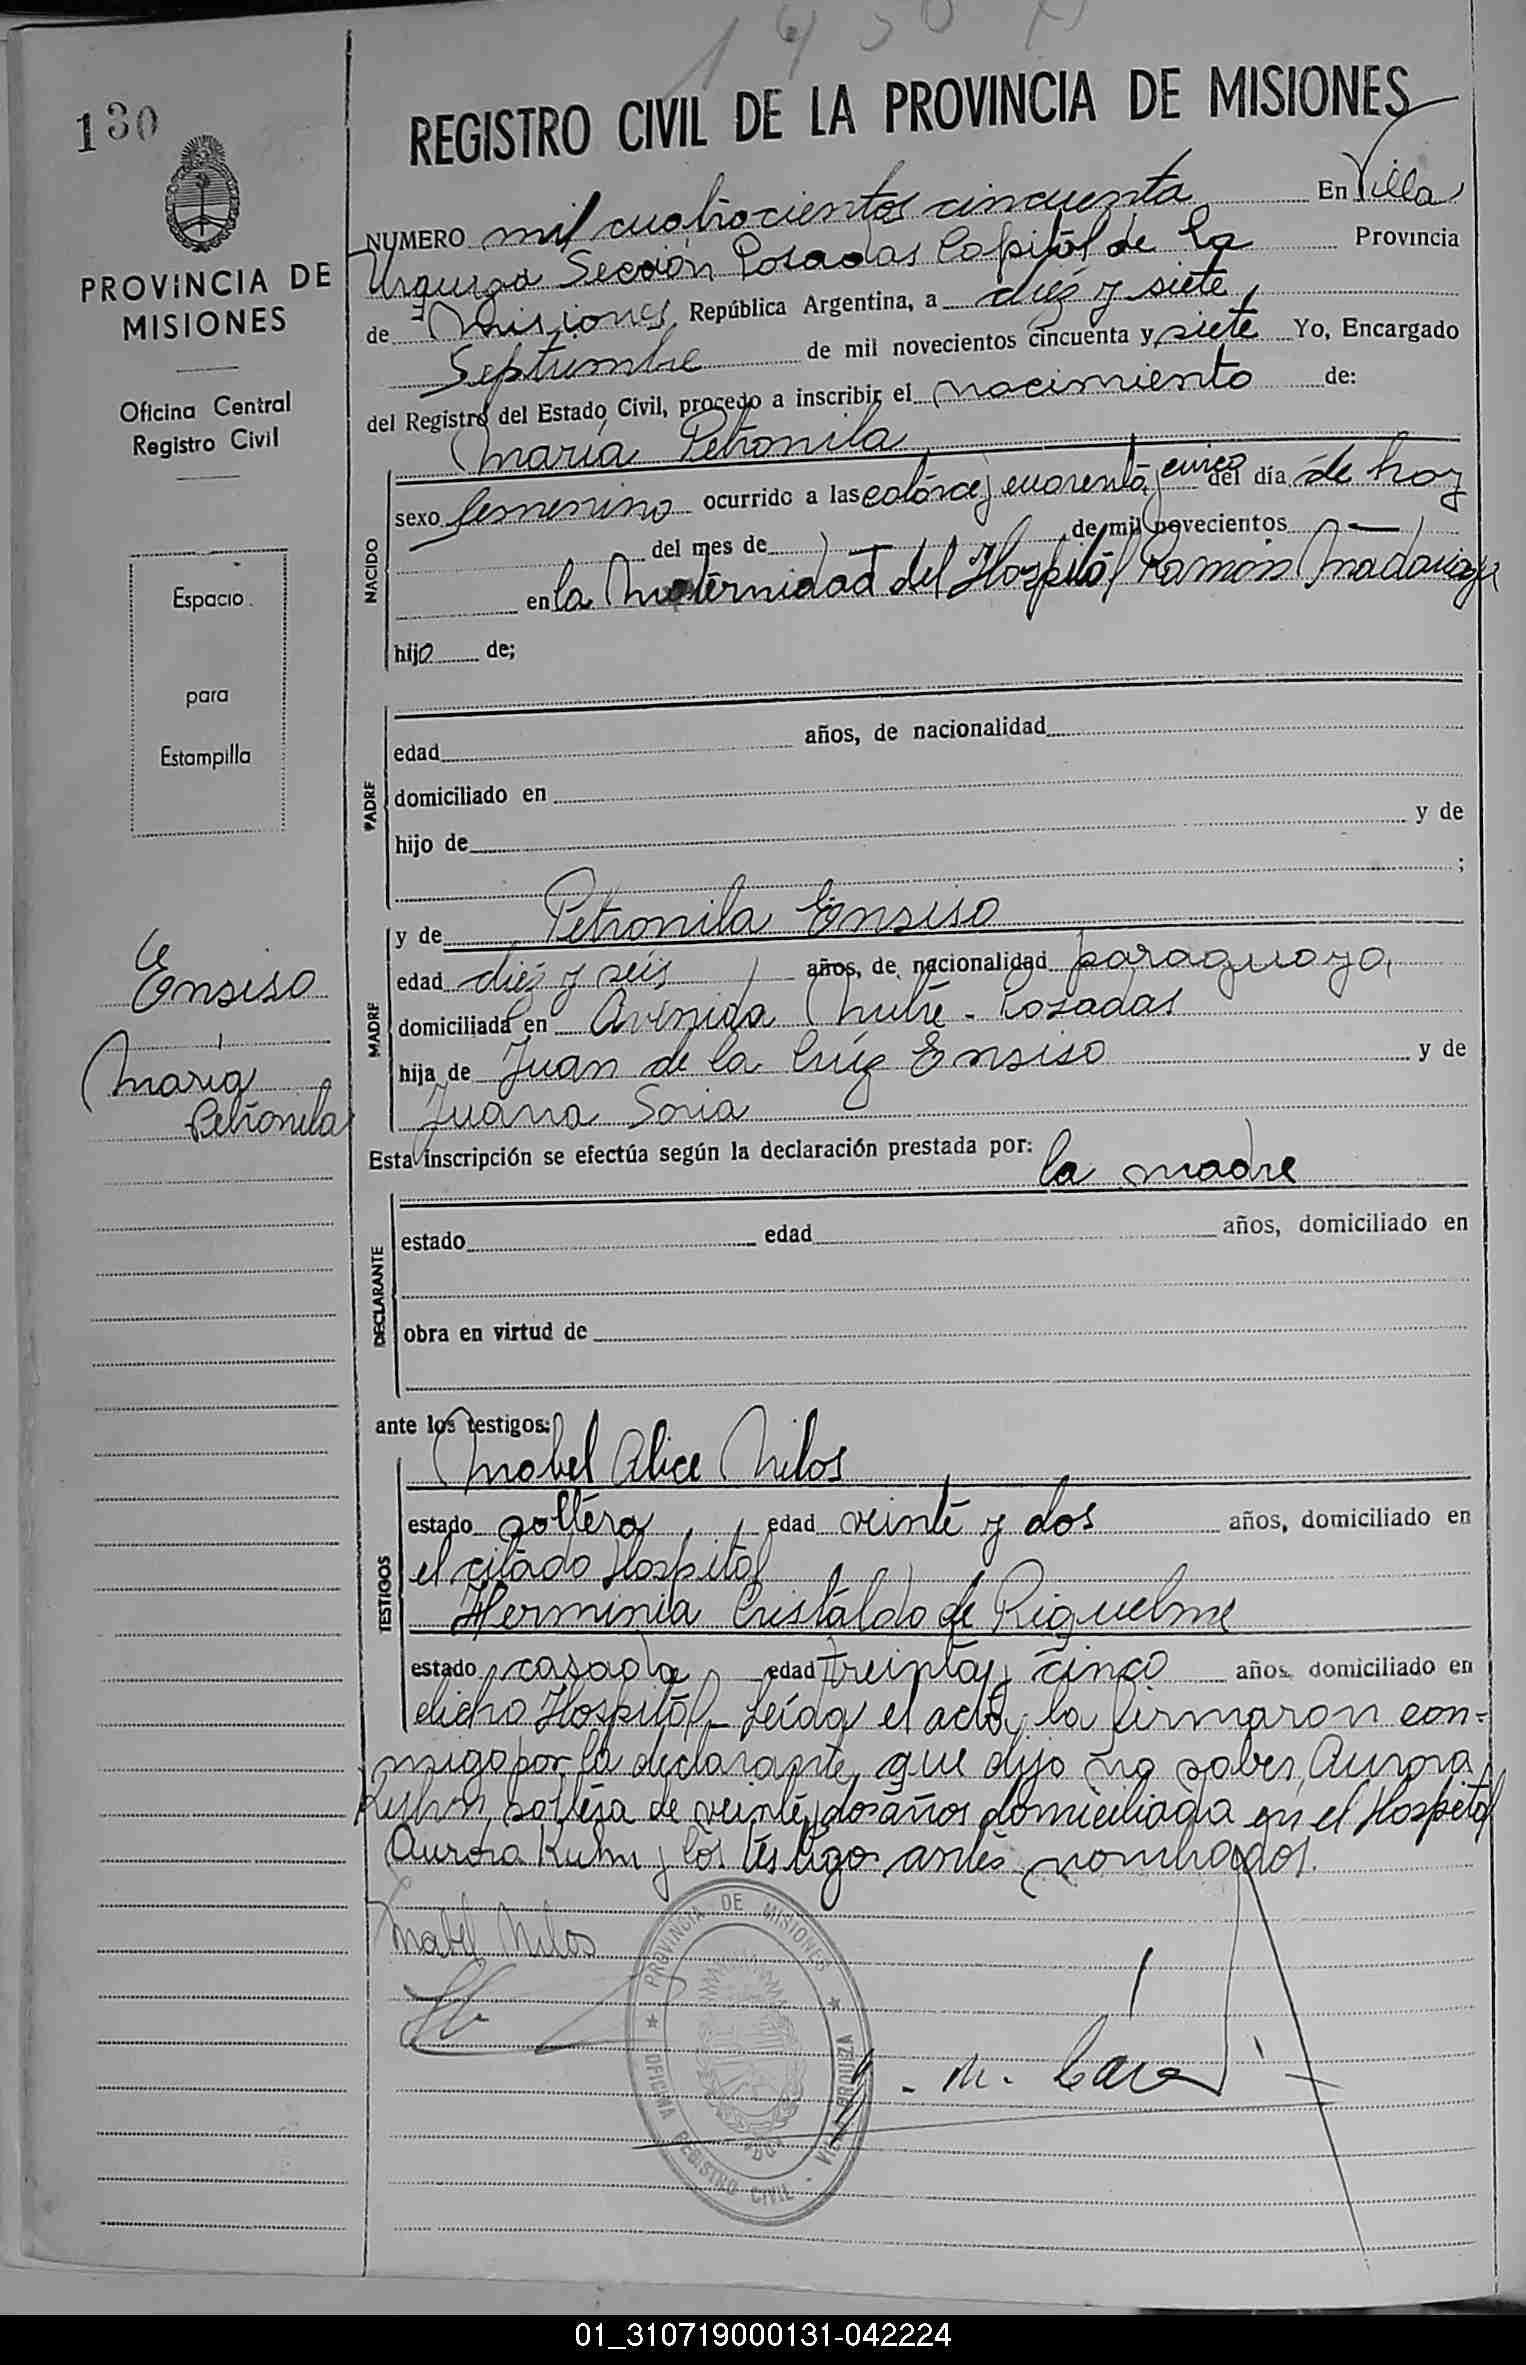 1450
130
REGISTRO CIVIL DE LA PROVINCIA DE MISIONES
PROVINCIA DE
MISIONES
Oficina Central
Registro Civil
Espacio
para
Estampilla
Ensiso
María
Petronila
NUMERO mil cuatrocientos cincuenta En Villa
Urquiza Sección Posadas Capital de la Provincia
de Misiones República Argentina, a diéz y siete
Septiembre de mil novecientos cincuenta y siete Yo, Encargado
del Registro del Estado Civil, procedo a inscribir el nacimiento de:
María Petronila
NACIDO
sexo femenino ocurrido a las catorce y cuarenta y cinco del día de hoy
del mes de de mil novecientos
en la Maternidad del Hospital Ramón Madariaga
hijo de;
PADRE
edad años, de nacionalidad
domiciliado en
hijo de y de
;
MADRE
y de Petronila Ensiso
edad diéz y seis años, de nacionalidad paraguaya,
domiciliada en Avenida Mitre - Posadas
hija de Juan de la Crúz Ensiso y de
Juana Soria
Esta inscripción se efectúa según la declaración prestada por: la madre
DECLARANTE
estado edad años, domiciliado en
obra en virtud de
ante los testigos:
TESTIGOS
Mabel Alice Milos
estado soltera, edad veinte y dos años, domiciliado en
el citado Hospital
Herminia Cristaldo de Riquelme
estado casada, edad treinta y cinco años, domiciliado en
dicho Hospital - Leída el acta, la firmaron con-
migo por la declarante, que dijo no saber, Aurora
Kuhn, soltera de veinte y dos años domiciliada en el Hospital
Aurora Kuhn y los testigos antes nombrados.
Mabel Milos
PROVINCIA DE MISIONES
OFICINA REGISTRO CIVIL - VILLA URQUIZA
01_310719000131-042224